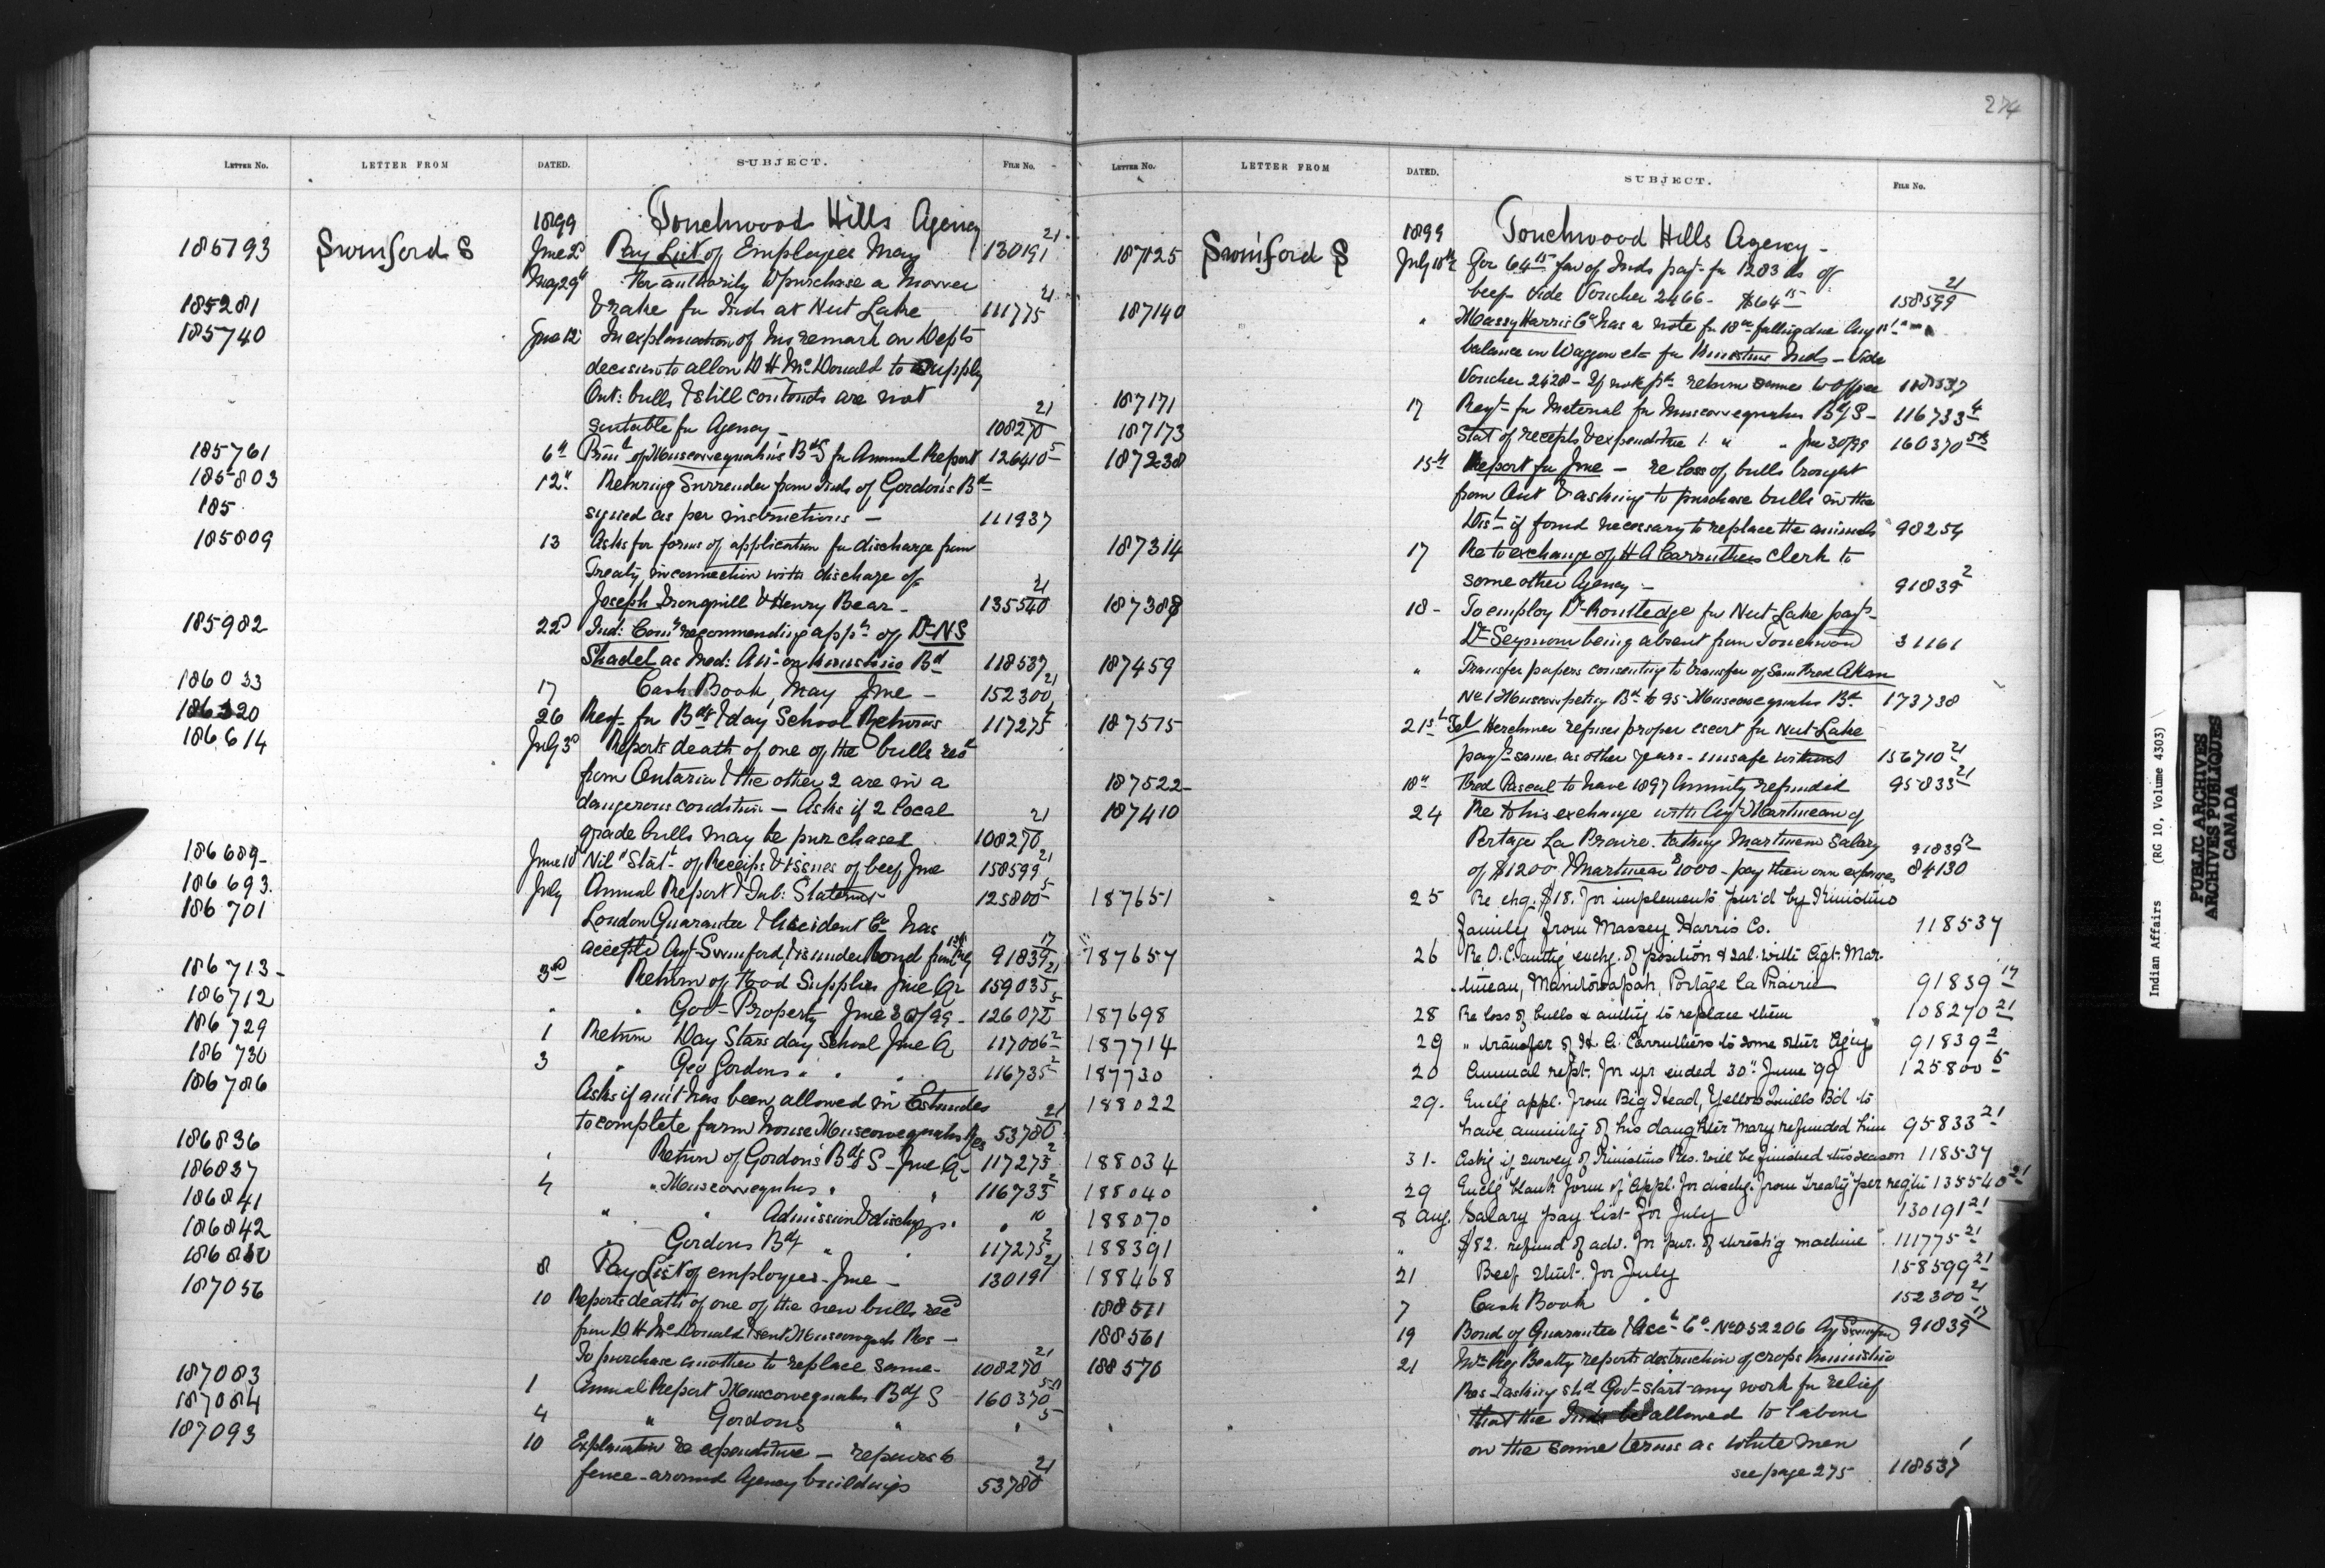 LETTER No. LETTER FROM DATED. SUBJECT. FILE No.
1899 Touchwood Hills Agency
185193 Swinford S June 2d Pay List of Employees May 130191 21
May 29th For authority to purchase a Mower
185281 & rake for Inds at Nut Lake 111775 21
185740 June 12 In explanation of his remark on Depts
decision to allow D H McDonald to supply
Ont: bulls & still contends are not
suitable for Agency - 108270 21
185761 6th Prinl of Muscowequahn's Bdg S for Annual Report 126410 5
185803 12th Returng Surrender from Inds of Gordon's Bd
185 signed as per instructions - 111937
185809 13 Asks for forms of application for discharge from
Treaty, in connection with discharge of
Joseph Ironquill & Henry Bear - 135540 21
185982 22d Ind: Comr recommending appt of Dr N S
Shadel as Med: Att on Kinistino Bd 118537
186033 17 Cash Book, May June - 152300 21
186320 26 Reqt for Bdg & day School Returns 117275
186614 July 3d Reports death of one of the bulls recd
from Ontario & the other 2 are in a
dangerous condition - Asks if 2 local
grade bulls may be purchased 108270 21
186689 June 10 "Nil" Statt of Receipts & issues of beef June 158599 21
186693 July Annual Report & Tab: Statemt 125800 5
186701 London Guarantee & Accident Co has
accepted Agt Swinford, & is under Bond from 91839 17
186713 3rd Return of Food Supplies June Qr 159035 21
186712 " " Govt Property June 30/99 - 126072 5
186729 1 Return Day Stars day School June Q 117006 2
186730 3 " Geo Gordons " " " 116735 2
186786 Asks if amt has been allowed in Estimates
to complete farm house Muscowequahns Res 53780 21
186836 " Return of Gordon's Bdg S - June Q - 117275 2
186837 4 " Muscowequahns " " 116733 2
186841 " " Admission & dischgs. " 10
186842 " Gordons Bdg " " 117275 2
186880 8 Pay List of employees - June - 130191 21
187056 10 Reports death of one of the new bulls recd
from D H McDonald & sent Muscowequah Res -
To purchase another to replace same - 108270 21
187083 1 Annual Report Muscowequahns Bdg S 160370
187084 4 " Gordons " " 5
187093 10 Explanation re expenditure - repairs to
fence around Agency buildings 53780 21
274
LETTER No. LETTER FROM DATED. SUBJECT. FILE No.
1899 Touchwood Hills Agency -
187125 Swinford S July 10th For 64 15 fav of Inds payt for 1283 lbs of
beef - vide Voucher 2466 - $64 15 158599 21
187140 " Massey Harris Co has a note for 18 00 falling due Aug 1st
balance on Waggon etc for Kinistino Inds - Vide
Voucher 2428 - If note pd return same to office 118537
187171 17 Reqt for Material for Muscowequahns Bdg S - 116733 4
187173 Stat of receipts & expenditure " " June 30/99 160370
187238 15th Report for June - re loss of bulls brought
from Ont & asking to purchase bulls in the
Dist if found necessary to replace the animals 98254
187314 17 Re to exchange of H A Carruthers clerk to
some other Agency - 91839 2
187388 18 - To employ Dr Routledge for Nut Lake payt -
Dr Seymour being absent from Touchwood 31161
187459 " Transfer papers consenting to transfer of
No 1 Muscowpetung Bd to 95 Muscowequahn Bd 173738
187515 21st Tel Herchmer refuses proper escort for Nut Lake
payt same as other years - unsafe without 156710 21
187522 18th Thos Pascal to have 1897 Annuity refunded 95833 21
187410 24 Re to his exchange with Agt Martineau of
Portage La Prairie. taking Martineau Salary 91839 2
of $1200 & Martineau $1000 - pay their own expenses 84130
187651 25 Re chg. $18. for implements pur'd by Kinistino
Family from Massey Harris Co. 118537
187657 26 Re O.C. authg exchg. of position & sal. with Agt. Mar-
tineau, Manitowapah, Portage la Prairie 91839 17
187698 28 Re loss of bulls & authg to replace them 108270 21
187714 29 " transfer of H. A. Carruthers to some other Agcy 91839 2
187730 20 Annual rept. for yr ended 30th June '99 125800 5
188022 29. Enclg appl. from Big Head, Yellow Quills Bd to
have annuity of his daughter Mary refunded him 95833 21
188034 31. Askg if survey of Kinistino Res. will be finished this season 118537
188040 29 Enclg blank form of "Appl. for dischg. from Treaty" per regtn 135540 21
188070 8 Aug. Salary pay list for July 130191 21
188391 " $82. refund of adv. for pur. of threshg machine 111775 21
188468 21 Beef Stmt. for July 158599 21
188511 7 Cash Book " 152300 21
188561 19 Bond of Guarantee & Acct Co No D52206 Ag Swinford 91839 17
188570 21 Mr Reg Beatty reports destruction of crops Kinistino
Res & asking shd Govt start any work for relief
that the Inds be allowed to labour
on the same terms as white men
see page 275 118537 1
Indian Affairs (RG 10, Volume 4303)
PUBLIC ARCHIVES
ARCHIVES PUBLIQUES
CANADA